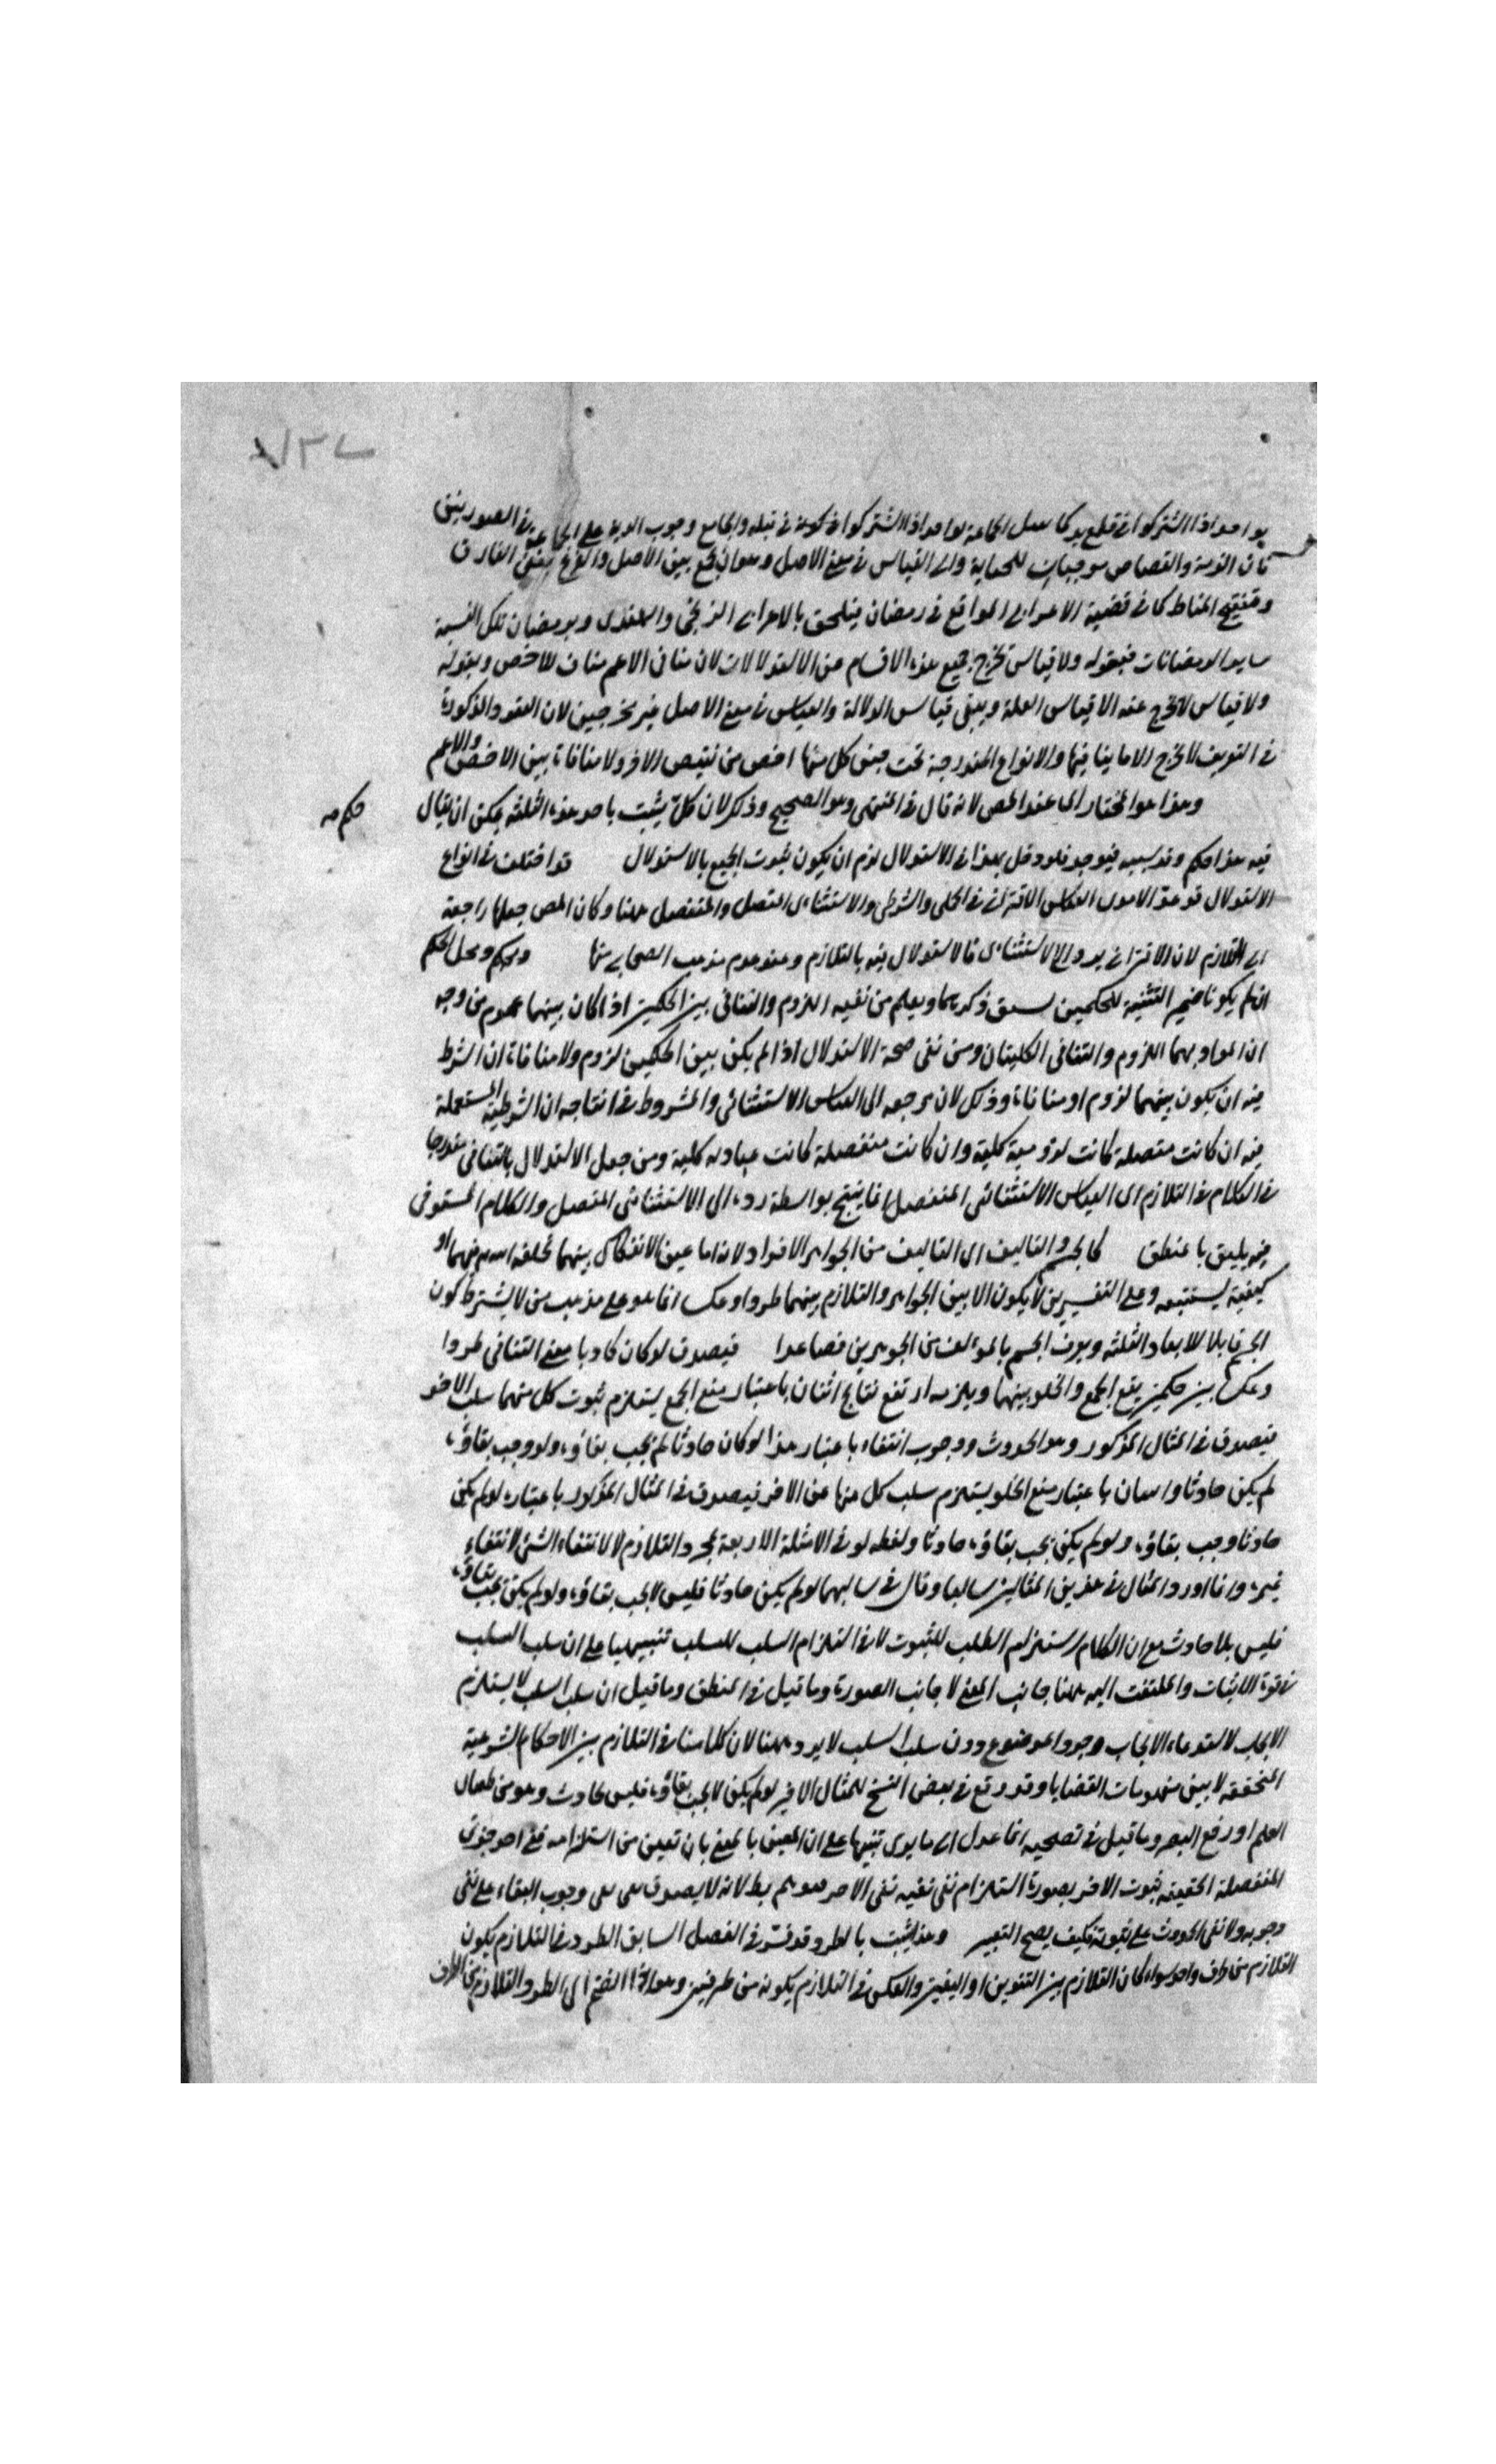 بواحد اذا اشتركوا في قطع يد كما يقتل الجماعة بواحد اذا اشتركوا في قتله والجامع وجوب الدية على الجماعة في الصورتين
فان الدية والقصاص موجبان للجناية والى القياس في معنى الاصل وهو ان يجمع بين الاصل والفرع بنفي الفارق
وتنقيح المناط كما في قضية الاعرابي المواقع في رمضان فيلحق بالاعرابي الزنجي والهندي وبرمضان تلك السنة
ساير الرمضانات فبقوله ولا قياس تخرج جميع هذه الاقسام من الاستدلالات لان منافي الاعم مناف للاخص وبقوله
ولا قياس لا تخرج عنه الا قياس العلة ويبقى قياس الدلالة والقياس في معنى الاصل غير مخرجين لان القيود المذكورة
في التعريف لا تخرج الا ما ينافيها والانواع المندرجة تحت جنس كل منها اخص من نقيض الاخر ولا منافاة بين الاخص والاعم
وهذا هو المختار اى عند المص لانه قال في المنتهى وهو الصحيح وذكر لان كل يثبت باحد هذه الثلثة يمكن ان يقال
حكم مه
فيه هذا حكم وجد سببه فيوجد فلو دخل بهذا في الاستدلال لزم ان يكون ثبوت الجميع بالاستدلال قد اختلف في انواع
الاستدلال قد عدّ الامدى القياس الاقتراني الحملى والشرطى والاستثناءى المتصل والمنفصل ههنا وكان المص جعلها راجعة
الى التلازم لان الاقتراني يرد الى الاستثناءى فالاستدلال فيه بالتلازم وعند عدم مذهب الصحابي منها وحكم ومحل الحكم
ان لم يكونا ضمير التثنية للحكمين سبق ذكرهما ويعلم من نفيه اللزوم والتنافى بين الحكمين اذا كان بينهما عموم من وجه
ان المراد بهما اللزوم والتنافى الكليتان ومن نفى صحة الاستدلال اذا لم يكن بين الحكمين لزوم ولا منافاة ان الشرط
فيه ان يكون بينهما لزوم او منافاة وذلك لان مرجعه الى القياس الاستثنائى والمشروط في انتاجه ان الشرطية المستعملة
فيه ان كانت متصلة كانت لزومية كلية وان كانت منفصلة كانت عنادية كلية ومن جعل الاستدلال بالتنافى مندرجا
في الكلام في التلازم اى القياس الاستثنائى المنفصل انما ينتج بواسطة رده الى الاستثنائى المتصل والكلام المستوفى
فيه يليق بالمنطق كالجسم والتاليف اى التاليف من الجواهر الافراد لانه اما عين الانفكاك بينهما او
كيفية يستتبعه وعلى التفسيرين لا يكون الا بين الجواهر والتلازم بينهما طردا وعكسا انما هو على مذهب من لا يشترط كون
الجسم قابلا للابعاد الثلثة ويعرف الجسم بالمؤلف من الجوهرين فصاعدا فيصدق لو كان كاد بامعنى التنافى طردا
وعكسا بين حكمين يقع الجمع والخلو بينهما ويلزمه اربع نتائج اثنان باعتبار منع الجمع يستلزم ثبوت كل منهما سلب الاخر
فيصدق في المثال المذكور وهو الحدوث ووجوب انتفاء باعتبار هذا لو كان حادثا لم يجب بقاؤه ولو وجب بقاؤه
لم يكن حادثا واثنان باعتبار منع الخلو يستلزم سلب كل منها عن الاخر فيصدق في المثال المذكور باعتباره لو لم يكن
حادثا وجب بقاؤه ولو لم يكن يجب بقاؤه حادثا ولفظه لو في الامثلة الاربعة لمجرد التلازم لا لانتفاء الشئ لانتفاء
غيره وانما اورد المثال في هذين المثالين سالبا وقال في سالبهما لو لم يكن حادثا فليس لا يجب بقاؤه ولو لم يكن يجب بقاؤه
فليس بلا حادث مع ان الكلام استلزام السلب للثبوت لا في استلزام السلب للسلب تنبيها على ان سلب السلب
في قوة الاثبات والملتفت اليه ههنا جانب المعنى لا جانب الصورة وما قيل في المنطق وما قيل ان سلب السلب لا يستلزم
الايجاب لاستدعاء الايجاب وجود الموضوع دون سلب السلب لا يرد ههنا لان كلامنا في التلازم بين الاحكام الشرعية
المتحققة لا بين مفهومات القضايا وقد وقع في بعض النسخ للمثال الاخير لو لم يكن لا يجب بقاؤه فليس بحادث وهو من طغيان
القلم او رفع البصر وما قيل في تصحيحه انما عدل الى ما يرى تنبيها على ان المعين بالمعنى بان تعين من استلزامه نفى احد جزئى
المنفصلة الحقيقية ثبوت الاخر بصورة استلزام نفى نقيه نفى الاخر فهو وهم بطلانه لا يصدق على وجوب البقاء على نفى
وجوبه ولا نفى الحدوث على ثبوته فكيف يصح التعبير وهذا يثبت بالطرد قد فسّر في الفصل السابق الطرد في التلازم بكون
التلازم من طرف واحد سواء كان التلازم بين الثبوتين او النفيين والعكس في التلازم بكونه من طرفين وهو اذا انضم اى الطرد والتلازم من الطرف